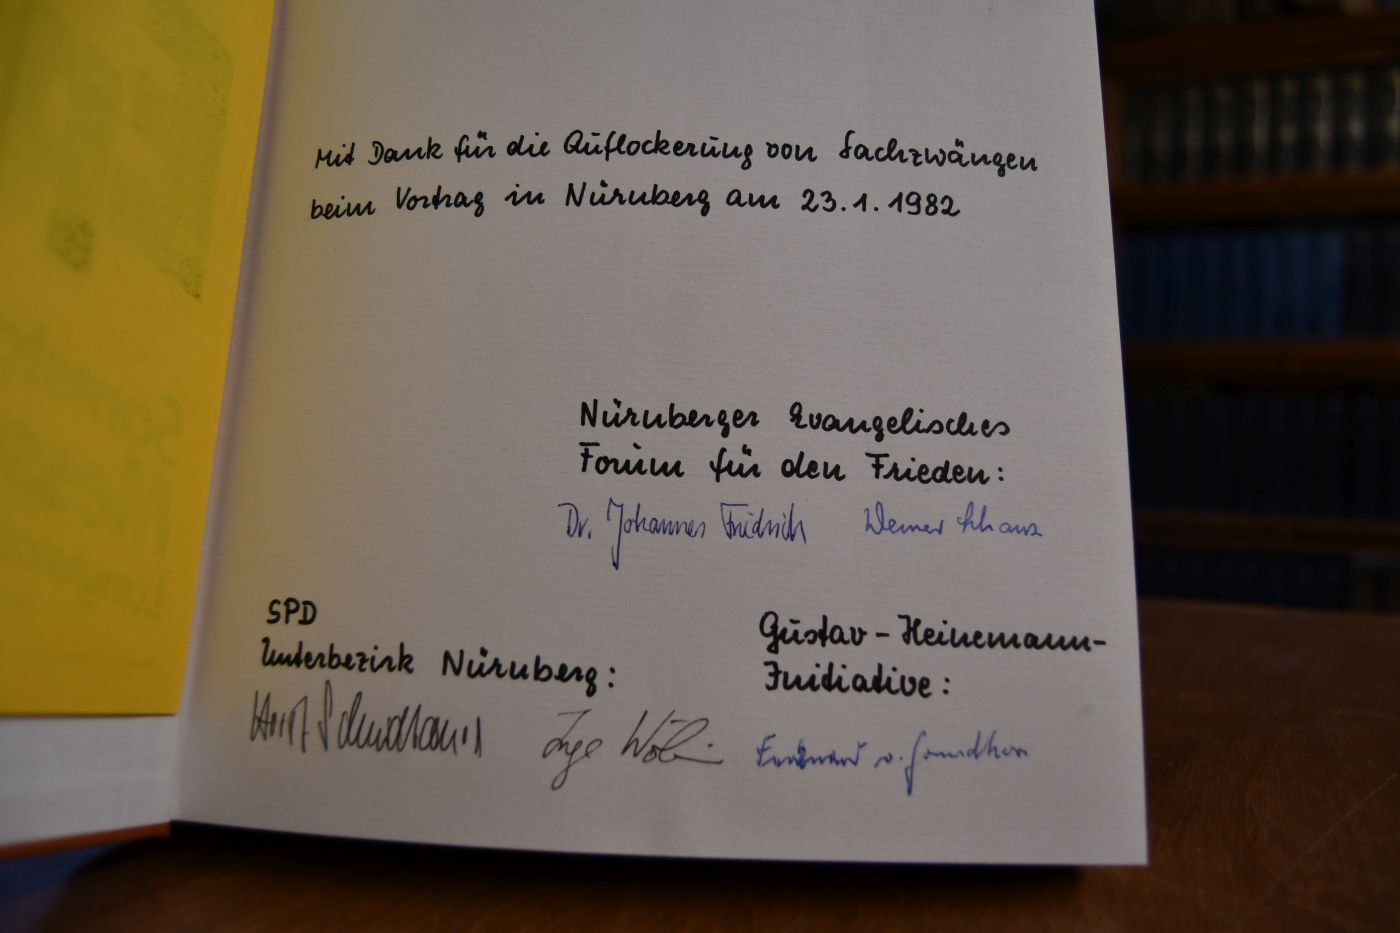 Mit Dank für die Auflockerung von Sachzwängen
beim Vortrag in Nürnberg am 23.1.1982
Nürnberger Evangelisches
Forum für den Frieden:
Dr. Johannes Friedrich Werner Schanz
SPD
Unterbezirk Nürnberg:
Gustav-Heinemann-
Initiative:
Horst Inge
v.